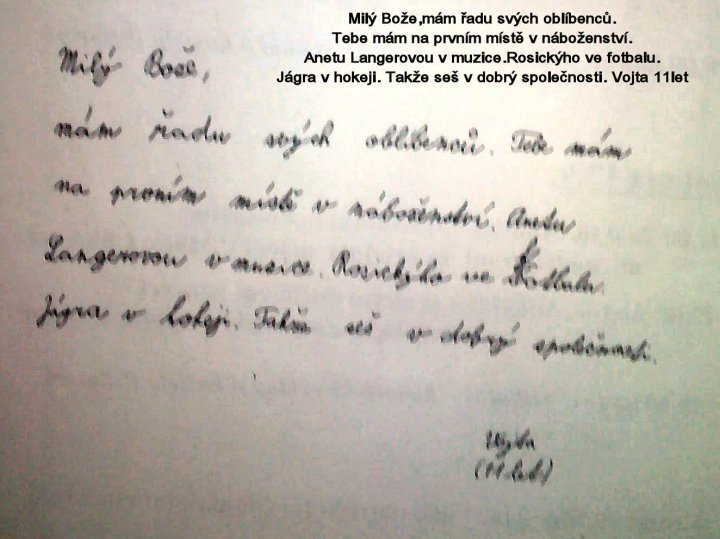 Milý Bože,mám řadu svých oblíbenců.
Tebe mám na prvním místě v náboženství.
Anetu Langerovou v muzice.Rosickýho ve fotbalu.
Jágra v hokeji. Takže seš v dobrý společnosti. Vojta 11let
Milý Bože,
mám řadu svých oblíbenců. Tebe mám
na prvním místě v náboženství. Anetu
Langerovou v muzice. Rosickýho ve fotbalu.
Jágra v hokeji. Takže seš v dobrý společnosti.
Vojta
(11 let)